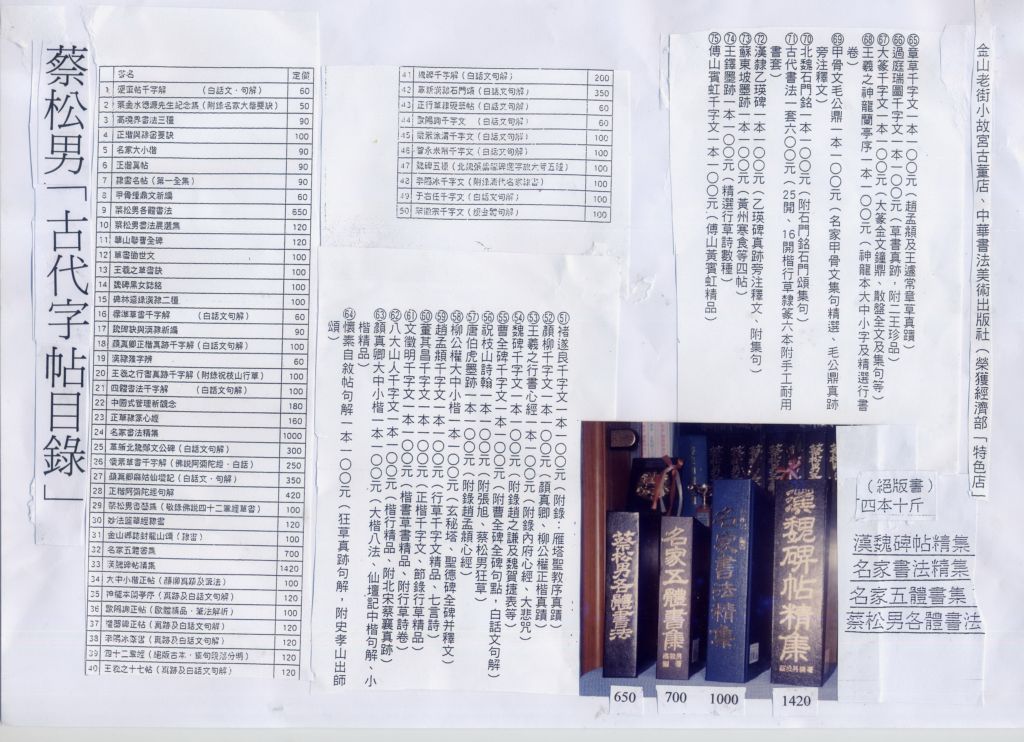 金山老街小故宮古董店、中華書法美術出版社（榮獲經濟部「特色店」
蔡松男「古代字帖目錄」
書名 定價
1 褒崮帖千字解 （白話文．句解） 60
3 高境界書法三種 90
4 正楷與隸書要訣 100
5 名家大小楷 90
6 正楷真帖 90
7 隸書名帖（第一全集） 90
8 甲骨鐘鼎文新編 60
9 蔡松男各體書法 650
10 蔡松男書法晨選集 120
11 華山聯曹全碑 120
12 草書喻世文 100
13 王羲之草書訣 100
14 魏碑黑女誌銘 100
15 碑林遊錄漢隸二種 100
16 標準草書千字解 （白話文句解） 100
17 魏碑訣與漢隸新編 90
18 顏真卿正楷真跡千字解（白話文句解） 100
19 漢隸雅字辨 60
20 王羲之行書真跡千字解（附錄祝枝山行草） 100
21 四體書法千字解 （白話文句解） 100
22 中國式管理新觀念 180
23 正草隸篆心經 160
24 名家書法精集 1000
25 革新北魏鄭文公碑（白話文句解） 300
26 懷素草書千字解（佛說阿彌陀經．白話） 250
27 顏真卿麻姑仙壇記（白話文．句解） 350
28 正楷阿彌陀經句解 420
29 蔡松男書墊編（敬錄佛說四十二章經草書） 100
30 妙法蓮華經隸書 120
31 金山鄉誌封龍山頌（隸書） 100
32 名家五體書集 700
33 漢魏碑帖精集 1420
34 大中小楷正帖（顏柳真跡及筆法） 100
35 神龍本蘭亭序（真跡及白話文句解） 120
36 歐陽詢正帖（歐體精品．筆法解析） 100
37 禮器碑正帖（真跡及白話文句解） 120
38 李陽冰篆書（真跡及白話文句解） 120
39 四十二章經（絕版古本．章句段落分明） 120
40 王羲之十七帖（真跡及白話文句解） 120
41 魏碑千字解（白話文句解） 200
42 革新漢隸石門頌（白話文句解） 350
43 正行草隸硬筆帖（白話文句解） 100
44 歐陽詢千字文 （白話文句解） 60
45 梁萊涂清千字文（白話文句解） 100
46 智永來楷千字文（白話文句解） 100
47 魏碑五種（北魏張猛龍碑逐字放大等五種） 100
48 李陽冰千字文（附錄清代名家隸書） 100
49 于右任千字文（白話文句解） 100
50 蔡徽宗千字文（瘦金體句解） 100
51 褚遂良千字文一本一〇〇元（附錄：雁塔聖教序真蹟）
52 顏柳千字文一本一〇〇元（顏真卿、柳公權正楷真蹟）
53 王羲之行書心經一本一〇〇元（附錄內府心經、大悲咒）
54 魏碑千字文一本一〇〇元（附錄趙之謙及魏賀捷表等）
55 曹全碑千字文一本一〇〇元（附曹全碑全碑句點，白話文句解）
56 祝枝山詩翰一本一〇〇元（附張旭、蔡松男狂草）
57 唐伯虎墨跡一本一〇〇元（附錄趙孟頫心經）
58 柳公權大中小楷一本一〇〇元（玄秘塔、聖德碑全碑并釋文）
59 趙孟頫千字文一本一〇〇元（行草千字文精品、七言詩）
60 董其昌千字文一本一〇〇元（正楷千字文、節錄行草精品）
61 文徵明千字文一本一〇〇元（楷書草書精品、附行草詩卷）
62 八大山人千字文一本一〇〇元（楷行精品、附北宋蔡襄真跡）
63 顏真卿大中小楷一本一〇〇元（大楷八法、仙壇記中楷句解、小
楷精品）
64 懷素自敘帖句解一本一〇〇元（狂草真跡句解，附史孝山出師
頌）
65 章草千字文一本一〇〇元（趙孟頫及王遽常章草真蹟）
66 過庭瑞圖千字文一本一〇〇元（草書真跡，附二王珍品）
67 大篆千字文一本一〇〇元（大篆金文鐘鼎、散盤全文及集句等）
68 王羲之神龍蘭亭序一本一〇〇元（神龍本大中小字及精選行書
卷）
69 甲骨文毛公鼎一本一〇〇元（名家甲骨文集句精選、毛公鼎真跡
旁注釋文）
70 北魏石門銘一本一〇〇元（附石門銘石門頌集句）
71 古代書法一套六〇〇元（25開、16開楷行草隸篆六本附手工耐用
書套）
72 漢隸乙瑛碑一本一〇〇元（乙瑛碑真跡旁注釋文、附集句）
73 蘇東坡墨跡一本一〇〇元（黃州寒食等四帖）
74 王鐸墨跡一本一〇〇元（精選行草詩數種）
75 傅山賓虹千字文一本一〇〇元（傅山黃賓虹精品）
（絕版書）
四本十斤
漢魏碑帖精集
名家書法精集
名家五體書集
蔡松男各體書法
蔡松男各體書法
名家五體書集
名家書法精集
漢魏碑帖精集
650
700
1000
1420